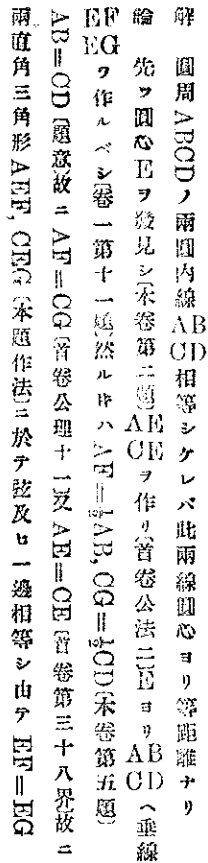 解　圓周ABCDノ兩圓内線AB CD相等シケレバ此兩線圓心ヨリ等距離ナリ
論　先ヅ圓心Eヲ發見シ〔本卷第二題〕AE CEヲ作リ〔首卷公法二〕EヨリAB CDヘ垂線
EF EGヲ作ルベシ〔卷一第十一題〕然ル時ハAF=½AB, CG=½CD〔本卷第五題〕
AB=CD〔題意〕故ニAF=CG〔首卷公理十一〕又AE=CE〔首卷第三十八界〕故ニ
兩直角三角形AEF, CEG〔本題作法〕ニ於テ弦及ヒ一邊相等シ由テEF=EG